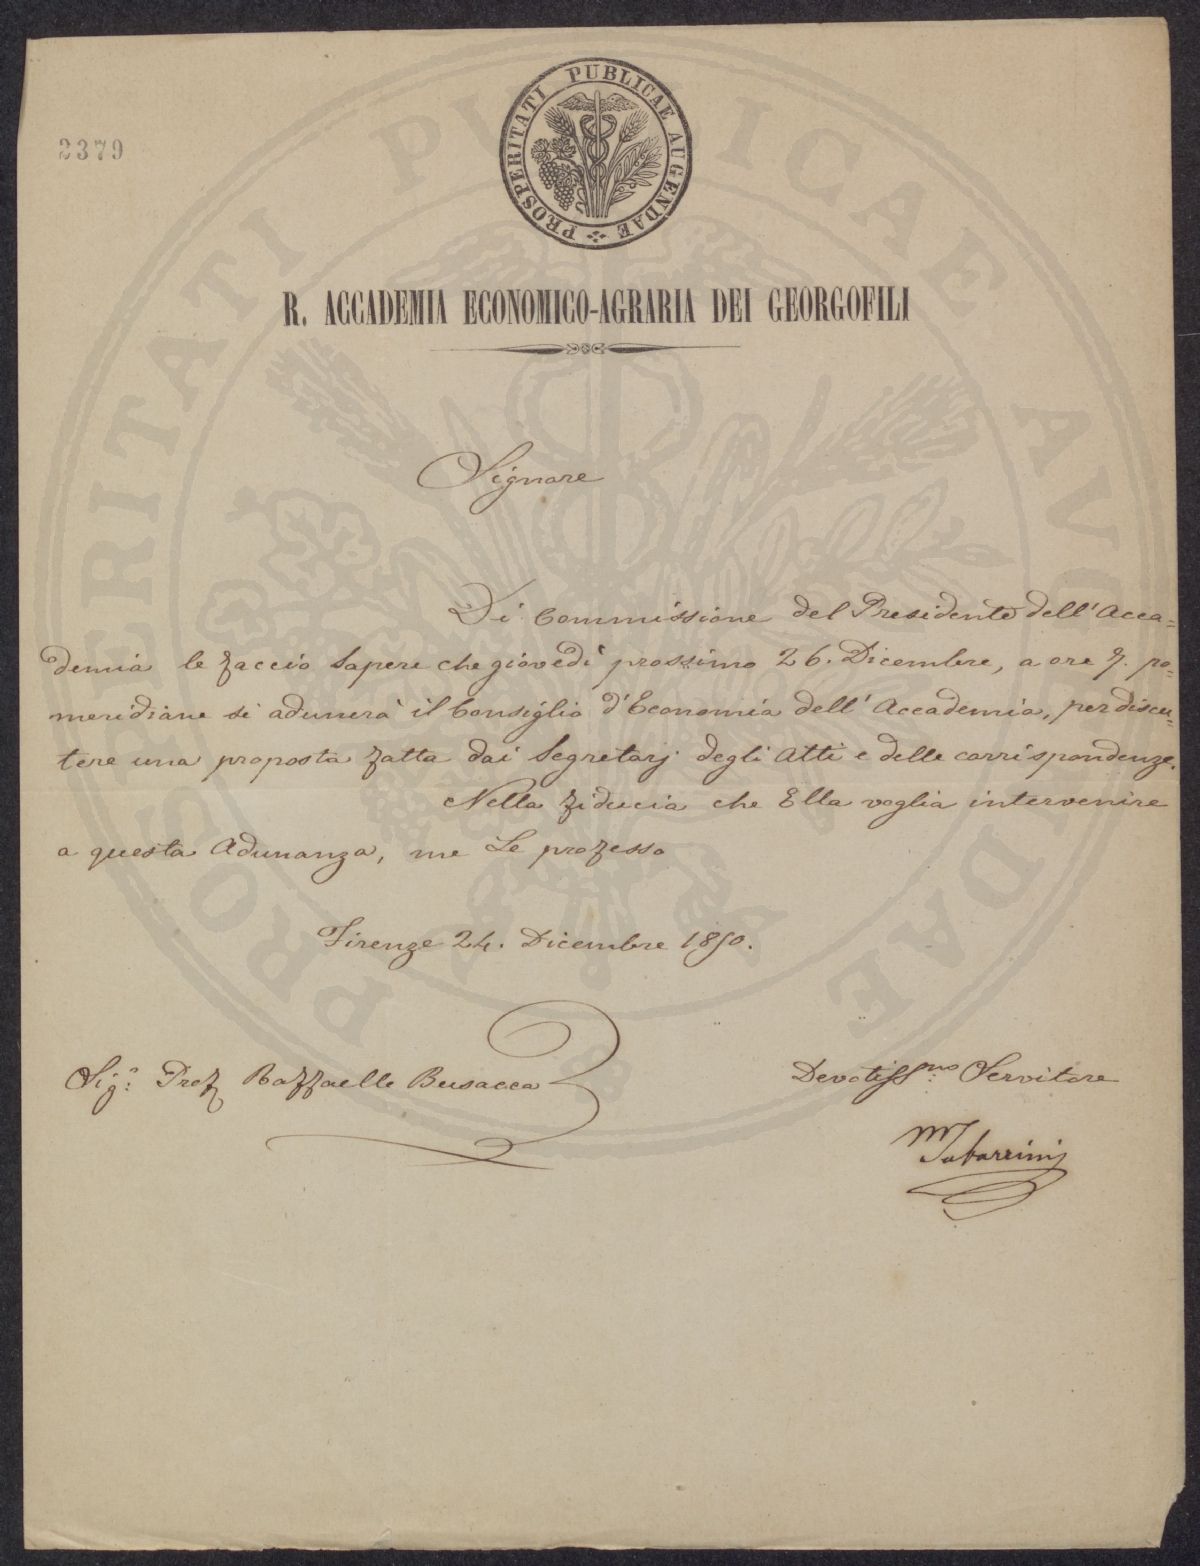 2379
PROSPERITATI PUBLICAE AUGENDAE
R. ACCADEMIA ECONOMICO-AGRARIA DEI GEORGOFILI
Signore
Di Commissione del Presidente dell'Acca=
demia le faccio Sapere che giovedì prossimo 26. Dicembre, a ore 7. po=
meridiane si adunerà il Consiglio d'Economia dell'Accademia, per discu=
tere una proposta fatta dai Segretarj degli Atti e delle corrispondenze.
Nella fiducia che Ella voglia intervenire
a questa Adunanza, me Le professo
Firenze 24. Dicembre 1850.
Sig.r Prof Raffaelle Busacca
Devotiss.mo Servitore
M Tabarrini